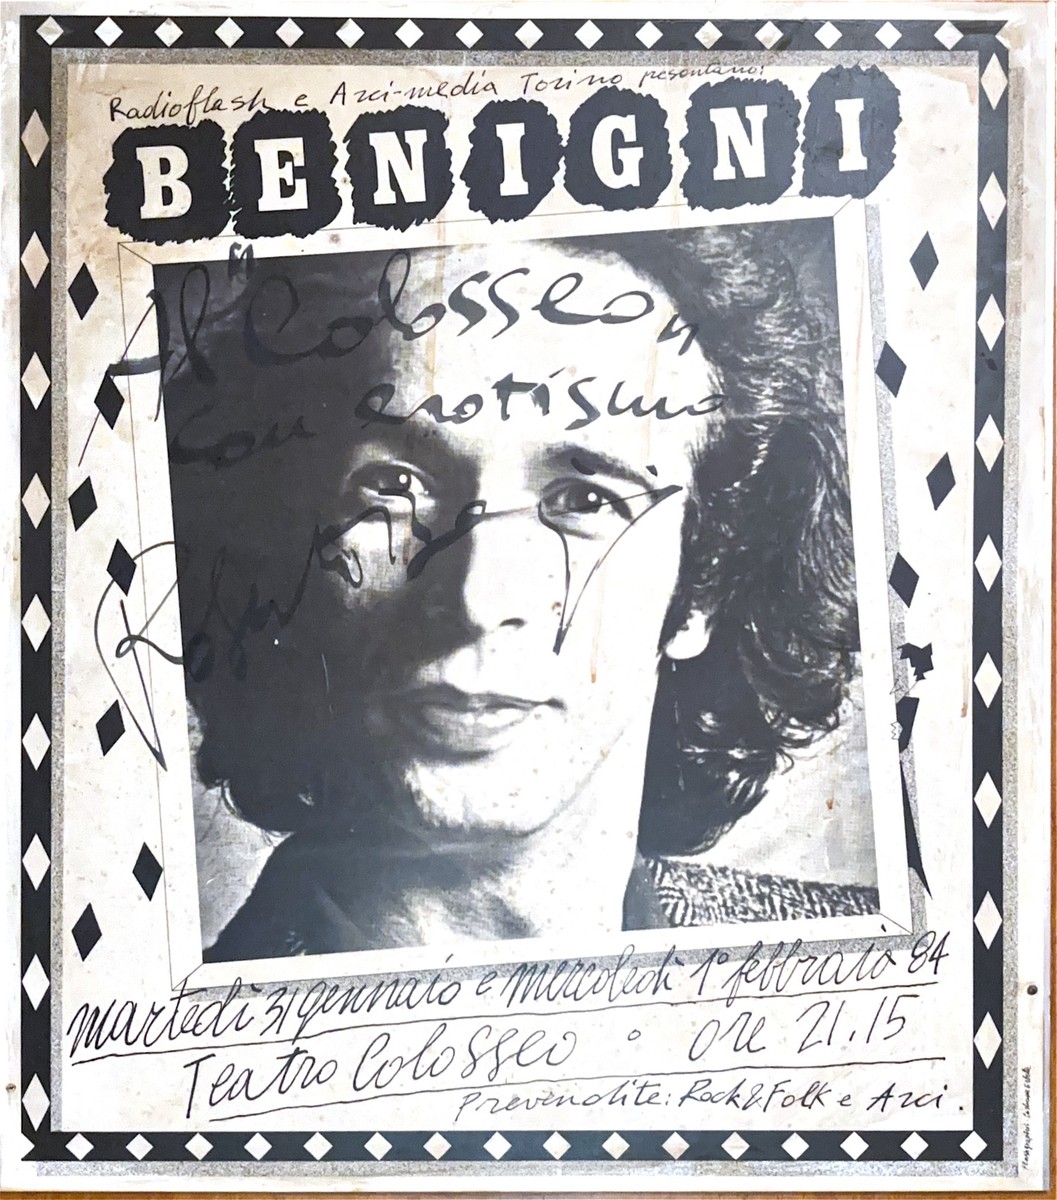 Radioflash e Arci-media Torino presentano:
BENIGNI
Al "Colosseo"
con erotismo
Roberto
martedì 31 gennaio e mercoledì 1° febbraio 84
Teatro Colosseo ° ore 21.15
Prevendite: Rock & Folk e Arci.